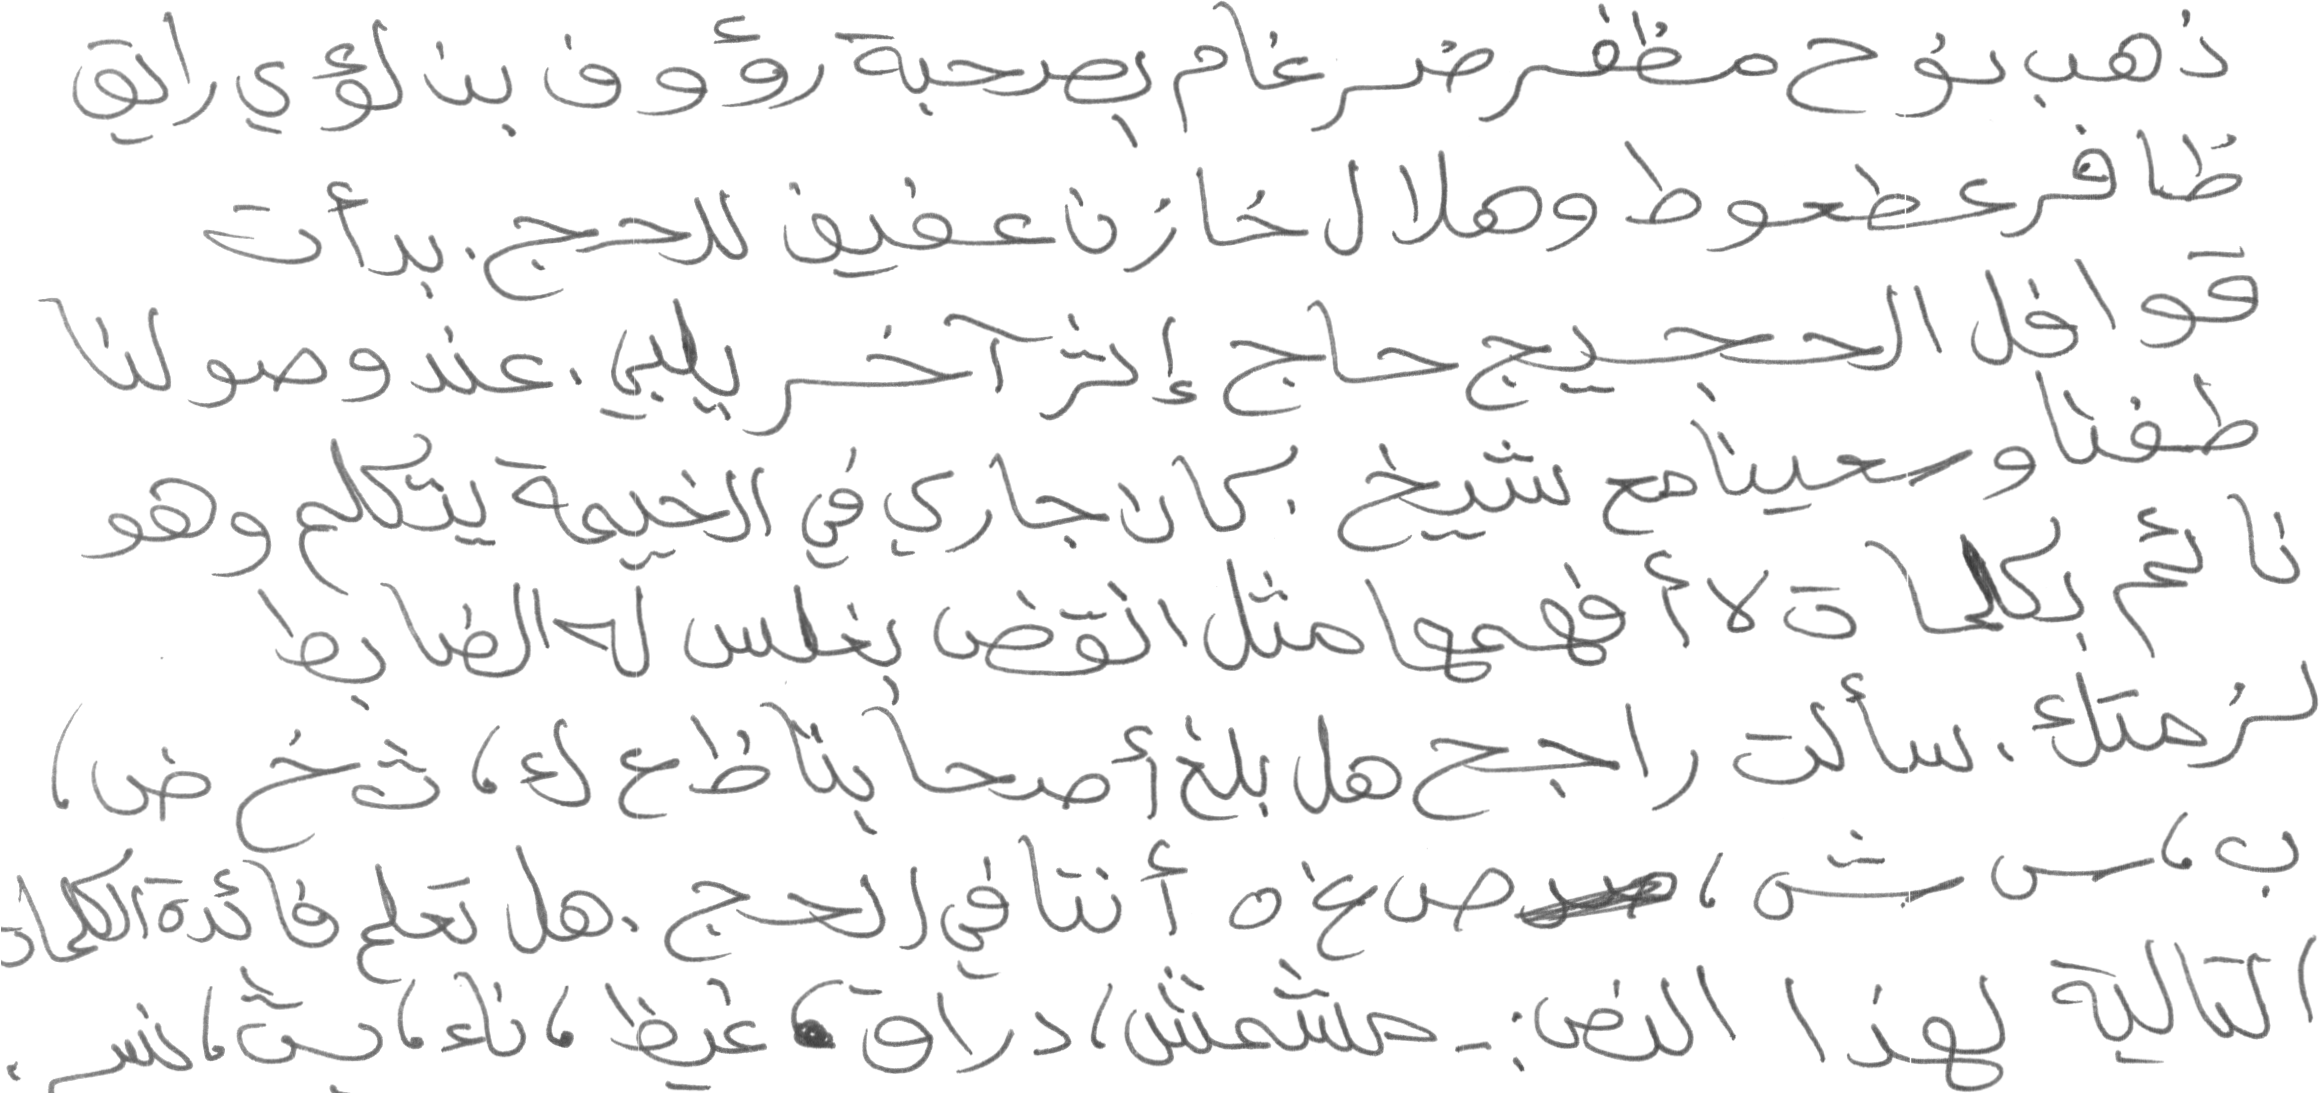 ذهب نوح مظفر ضرغام بصحبة رؤوف بن لؤي رايق
ظافر عطعوط وهلال خازن عفيف للحج. بدأت
قوافل الحجيج حاج إثر آخر يلبي. عند وصولنا
طفنا وسعينا مع شيخ. كان جاري في الخيمة يتكلم وهو
نائم بكلمات لا أفهمها مثل انقض بغلس له الضابط
لزمتك. سألت راجح هل بلغ أصحابنا ظ ع ك، ث خ ض،
ب، س ش، ص غ ه أنتا في الحج. هل تعلم فائدة الكلمات
التالية لهذا النص: - مشمش، دراق، غيظ، ناء، بث، نسر.